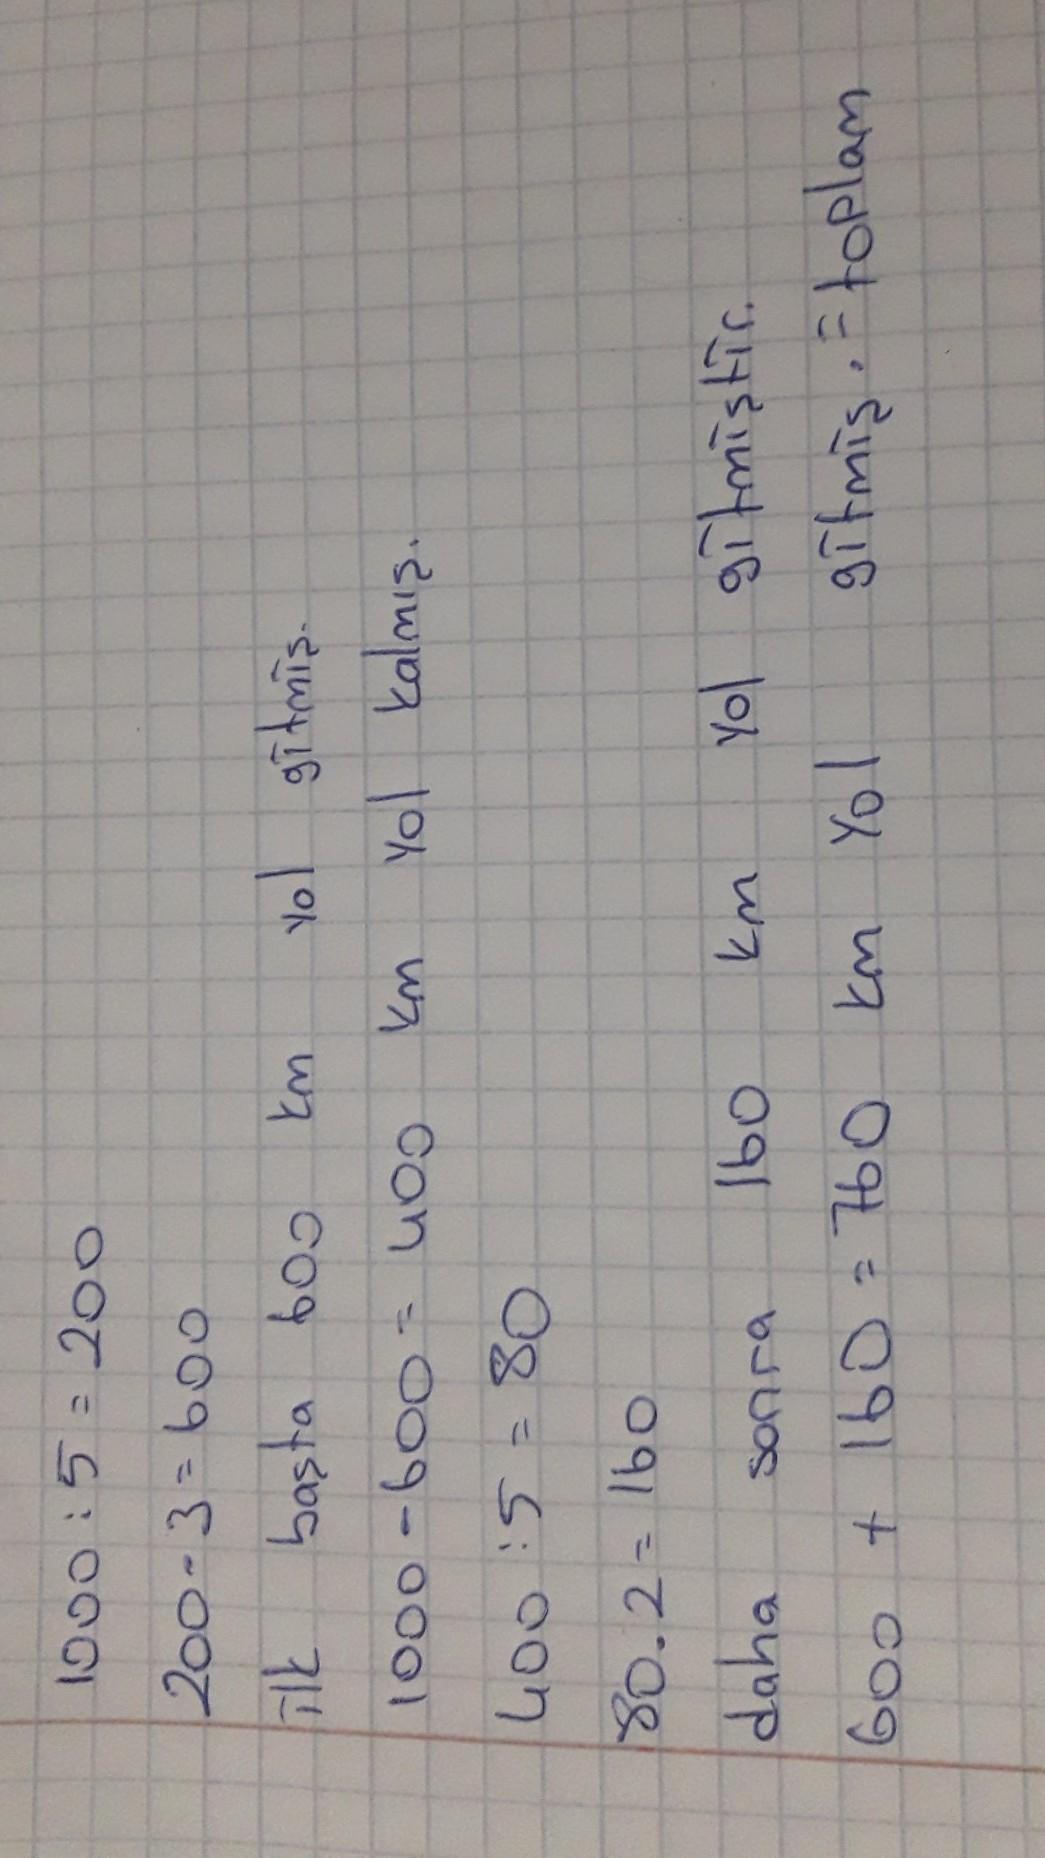 1000 : 5 = 200
200 - 3 = 600
ilk başta 600 km yol gitmiş.
1000 - 600 = 400 km yol kalmış.
400 : 5 = 80
80.2 = 160
daha sonra 160 km yol gitmiştir.
600 + 160 = 760 km yol gitmiş. = toplam